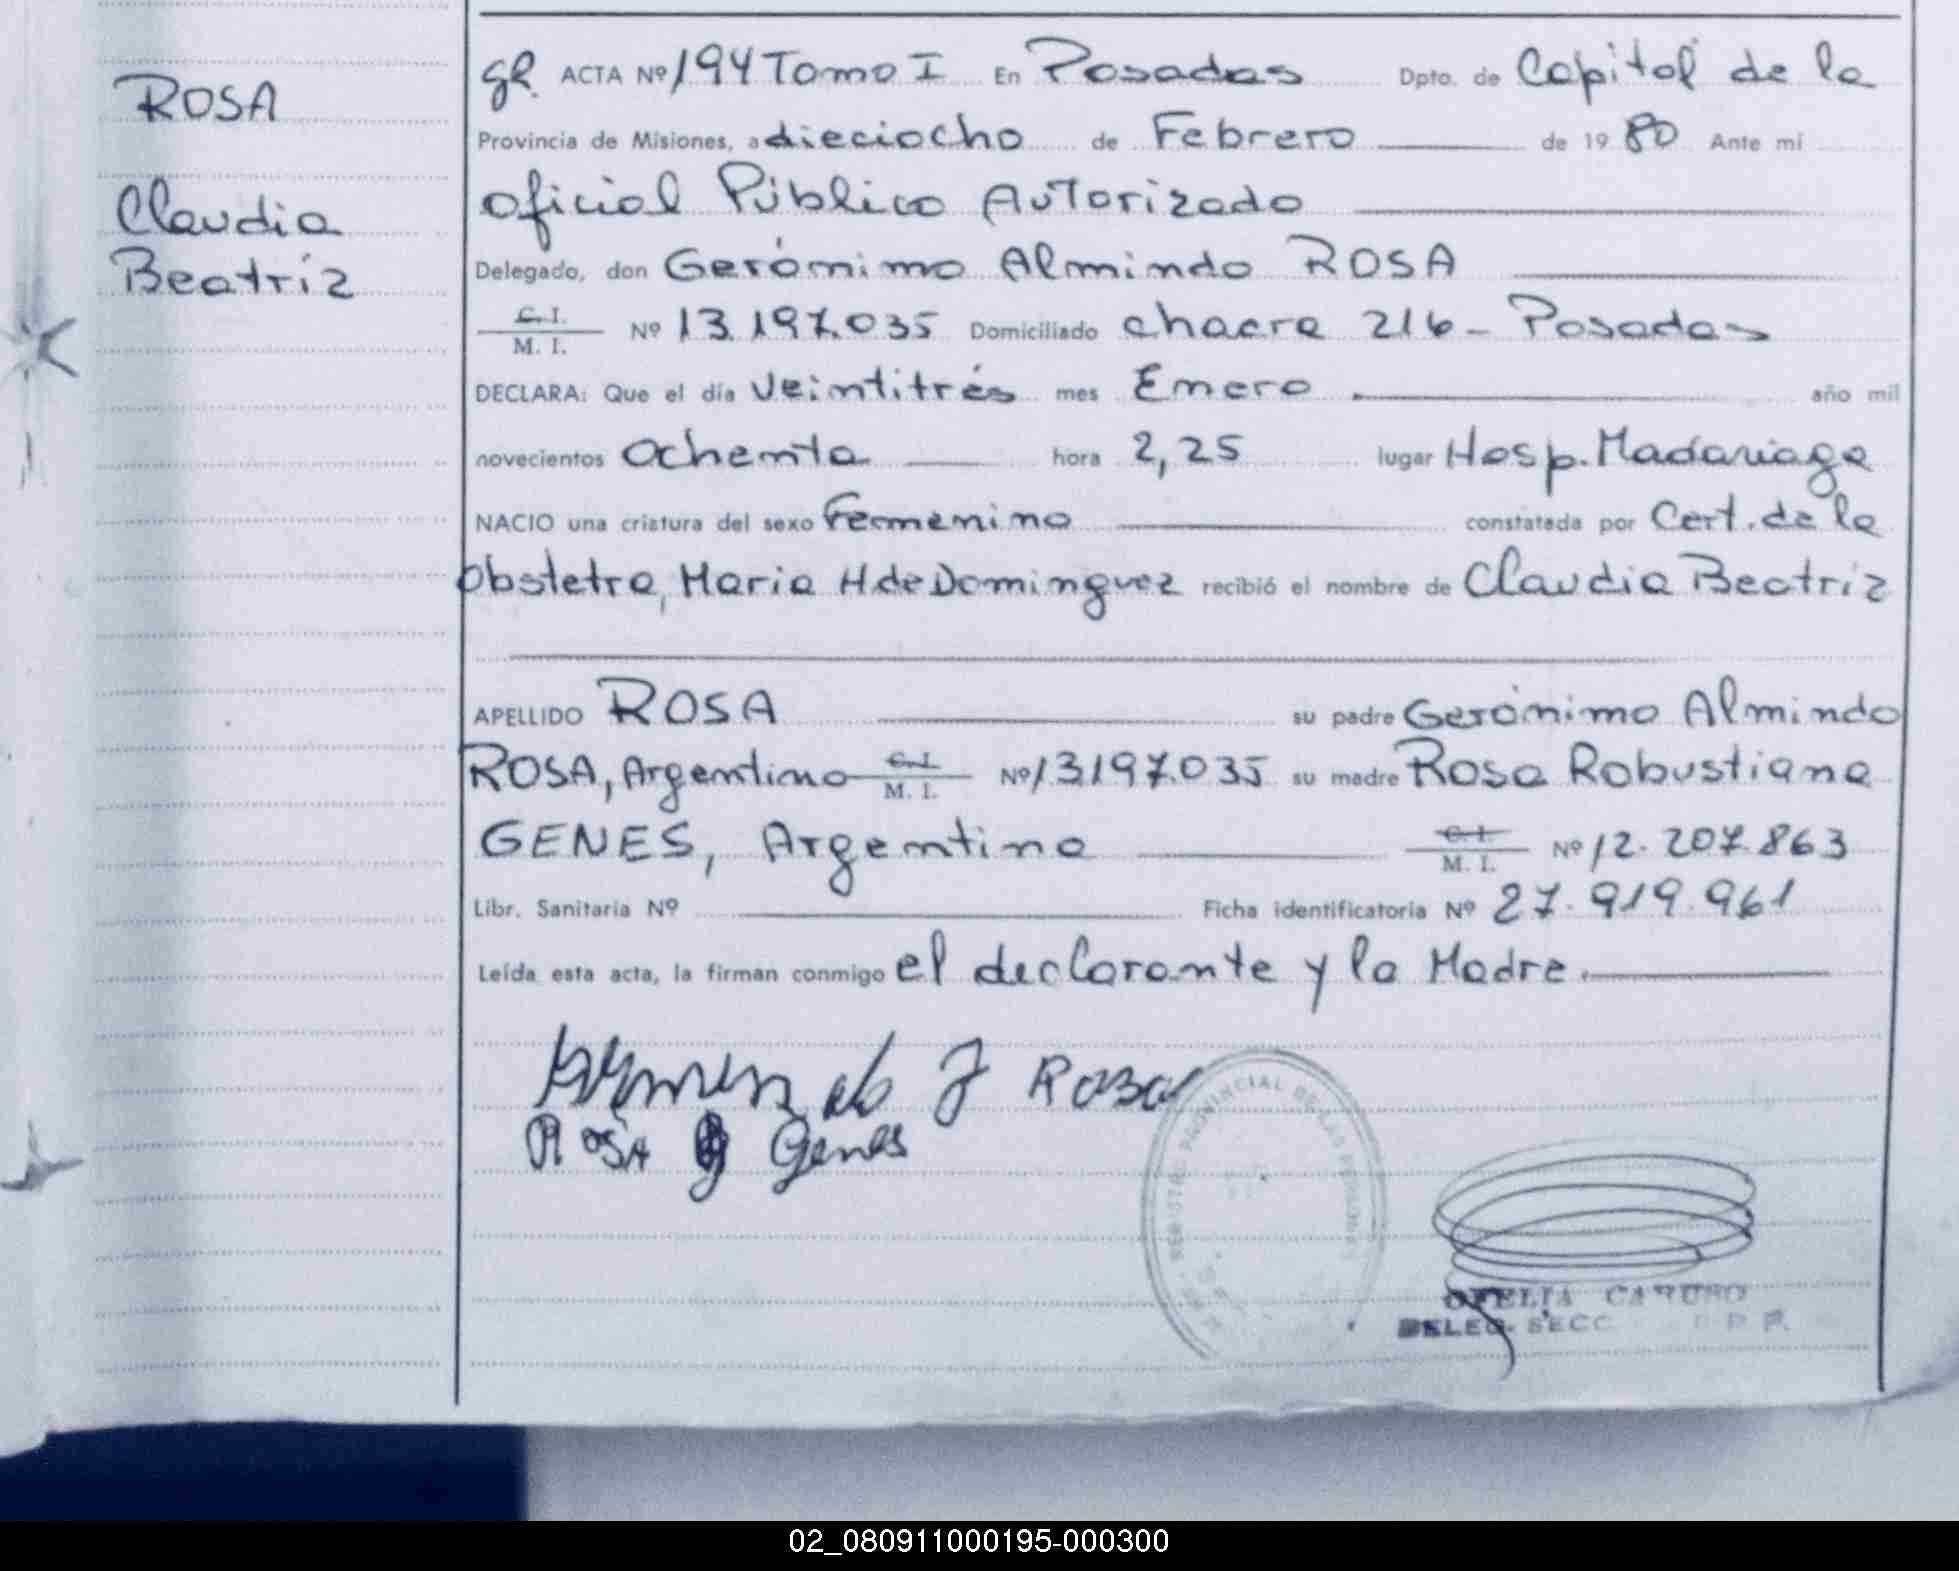 ROSA
Claudia
Beatríz
gR. ACTA Nº 194 Tomo I En Posadas Dpto. de Capital de la
Provincia de Misiones, a dieciocho de Febrero de 1980 Ante mi
Oficial Público Autorizado
Delegado, don Gerónimo Almindo ROSA
C. I.
M. I. Nº 13.197.035 Domiciliado chacra 216 - Posadas
DECLARA: Que el día veintitrés mes Enero año mil
novecientos ochenta hora 2,25 lugar Hosp. Madariaga
NACIO una criatura del sexo Femenino constatada por Cert. de la
Obstetra, Maria H. de Dominguez recibió el nombre de Claudia Beatríz
APELLIDO ROSA su padre Gerónimo Almindo
ROSA, Argentino C. I. M. I. Nº 13.197.035 su madre Rosa Robustiana
GENES, Argentina C. I. M. I. Nº 12.207.863
Libr. Sanitaria Nº Ficha identificatoria Nº 27.919.961
Leída esta acta, la firman conmigo el declarante y la Madre.
Rosa
ROSA Genes
PROVINCIAL DE LAS PERSONAS
OFELIA CARUSO
DELEG. SECC. R. P. P.
02_080911000195-000300